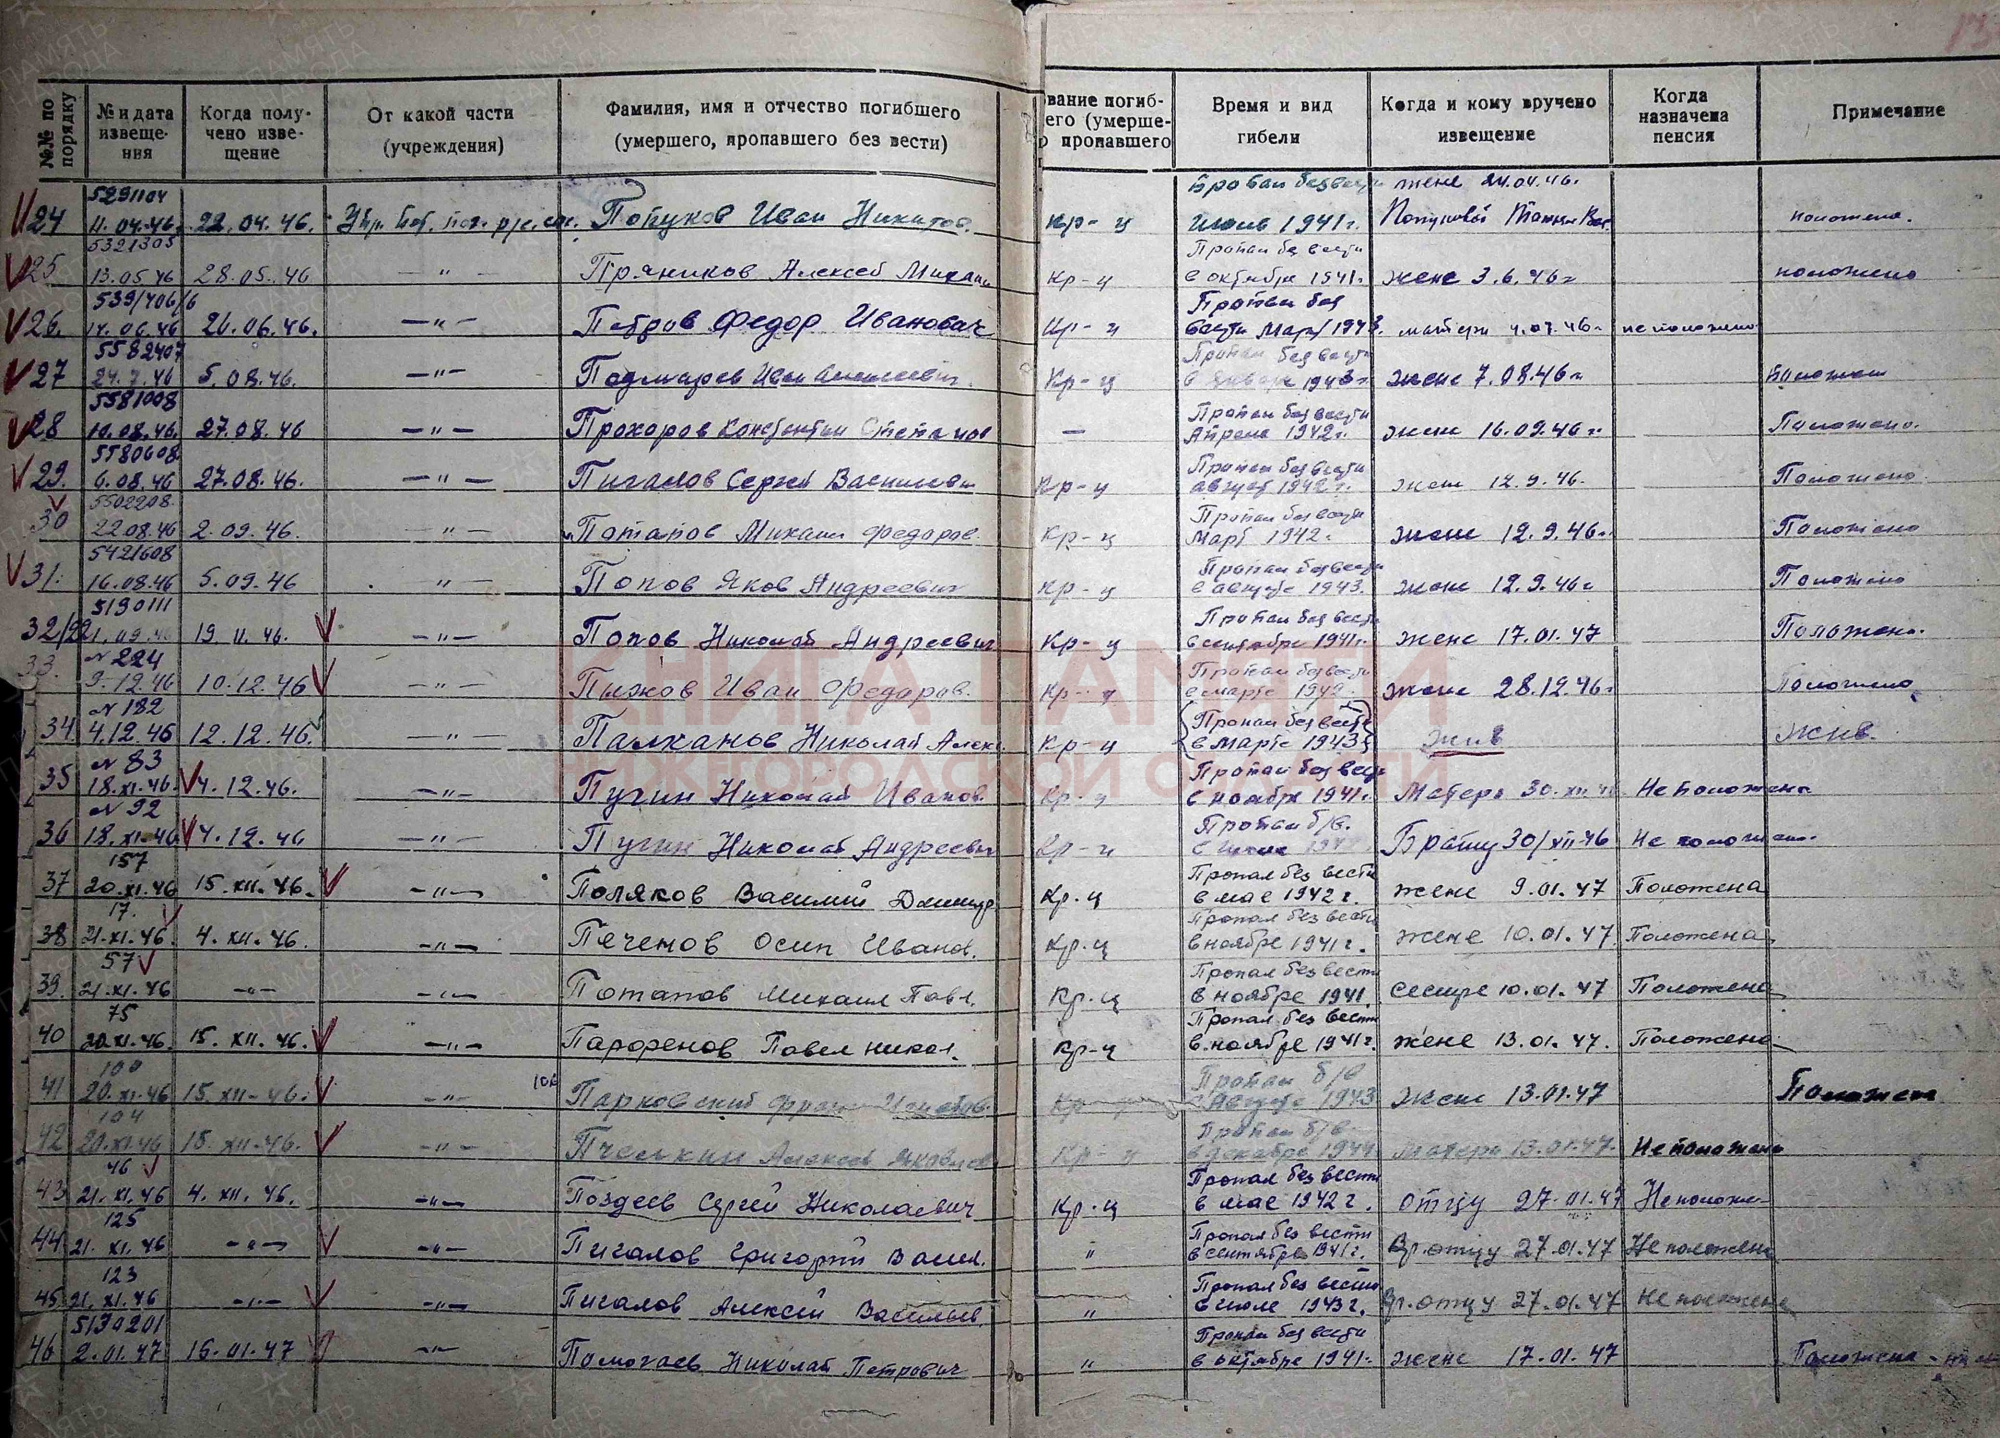 №№ по порядку | № и дата извещения | Когда получено извещение | От какой части (учреждения) | Фамилия, имя и отчество погибшего (умершего, пропавшего без вести) | вание погиб-его (умерше- пропавшего | Время и вид гибели | Когда и кому вручено извещение | Когда назначена пенсия | Примечание
24 | 5291104 11.04.46 | 22.04.46. | Попуков Иван Никитов. | Кр-ц | Пропал без вести 1941 г. | жене 24.04.46. | положена.
25 | 5321303 13.05.46 | 28.05.46 | —"— | Пряников Алексей Михаил | Кр-ц | Пропал без вести в октябре 1941 г. | жене 3.6.46 г | положено
26. | 539/406/6 14.06.46 | 26.06.46. | —"— | Петров Федор Иванович | Кр-ц | Пропал без вести Март 1943. | матери 4.07.46 г | не положено
27 | 5582407 24.7.46 | 5.08.46. | —"— | Иван | Кр-ц | Пропал без вести в январе 1943 г | жене 7.08.46 г
28 | 5581008 10.08.46. | 27.08.46 | —"— | Прохоров Константин Степанов | — | Пропал без вести Апреле 1942 г. | жене 16.09.46 г. | Положено.
29. | 5580608 6.08.46 | 27.08.46. | —"— | Пигалов Сергей Васильеви | Кр-ц | Пропал без вести август 1942 г. | жене 12.9.46. | Положено.
30 | 5502208 22.08.46 | 2.09.46. | " | Потапов Михаил Федоров. | Кр-ц | Пропал без вести Март 1942 г | жене 12.9.46 г. | Положено
31. | 5421608 16.08.46 | 5.09.46 | " | Попов Яков Андреевич | Кр-ц | Пропал без вести в августе 1943. | жене 12.9.46 г | Положено
32/22 | 5190111 | 19.11.46. | —"— | Попов Николай Андреевич | Кр-ц | Пропал без вести в сентябре 1941 г. | жене 17.01.47 | Положено.
33. | N 224 9.12.46 | 10.12.46 | —"— | Пыжов Иван Федоров. | Кр-ц | Пропал без вести в марте 1942 | жене 28.12.46 г | Положено
34 | N 182 4.12.46 | 12.12.46. | —"— | Палканов Николай Алекс | Кр-ц | Пропал без вести в марте 1943 | Жив | Жив.
35 | N 83 18.XI.46. | 4.12.46. | —"— | Пугин Николай Иванов. | Кр-ц | Пропал без вести в ноябре 1941 г. | Матери 30.XII.46 | Не положена
36 | N 92 18.XI.46 | 4.12.46 | —"— | Пугин Николай Андреевич | Кр-ц | Пропал б/в. | Брату 30/XII-46 | Не положен.
37 | 157 20.XI.46 | 15.XII.46. | —"— | Поляков Василий Дмитр | Кр-ц | Пропал без вести в мае 1942 г. | жене 9.01.47 | Положена
38 | 17. 21.XI.46 | 4.XII.46. | —"— | Печенов Осип Иванов. | Кр-ц | Пропал без вести в ноябре 1941 г. | жене 10.01.47 | Положена.
39. | 57 21.XI.46 | —"— | —"— | Потапов Михаил Павл. | Кр-ц | Пропал без вести в ноябре 1941. | сестре 10.01.47 | Положена
40 | 75 20.XI.46. | 15.XII.46. | —"— | Парфенов Павел Никол. | Кр-ц | Пропал без вести в ноябре 1941 г. | жене 13.01.47. | Положена.
41 | 100 20.XI.46 | 15.XII-46. | —"— | Парковский | Кр | Пропал б/в Августе 1943 | жене 13.01.47 | Положен
42 | 104 20.XI.46 | 15.XII-46. | —"— | Пчелкин Алексей Яковлев | Кр-ц | Пропал б/в в декабре 1944. | Матери 13.01.47. | Не положена
43 | 46 21.XI.46 | 4.XII.46. | —"— | Поздеев Сергей Николаевич | Кр-ц | Пропал без вести в мае 1942 г. | отцу 27.01.47 | Не полож-
44 | 125 21.XI.46 | —"— | —"— | Пигалов Григорий Васил. | " | Пропал без вести в сентябре 1941 г. | Вр.отцу 27.01.47 | Не положена
45 | 123 21.XI.46 | —"— | —"— | Пигалов Алексей Васильев. | " | Пропал без вести в июле 1943 г. | Вр.отцу 27.01.47 | Не положена
46 | 5130201 2.01.47 | 16.01.47 | —"— | Помогаев Николай Петрович | " | Пропал без вести в октябре 1941 г. | жене 17.01.47 | Положена
КНИГА ПАМЯТИ
НИЖЕГОРОДСКОЙ ОБЛАСТИ
ПАМЯТЬ НАРОДА